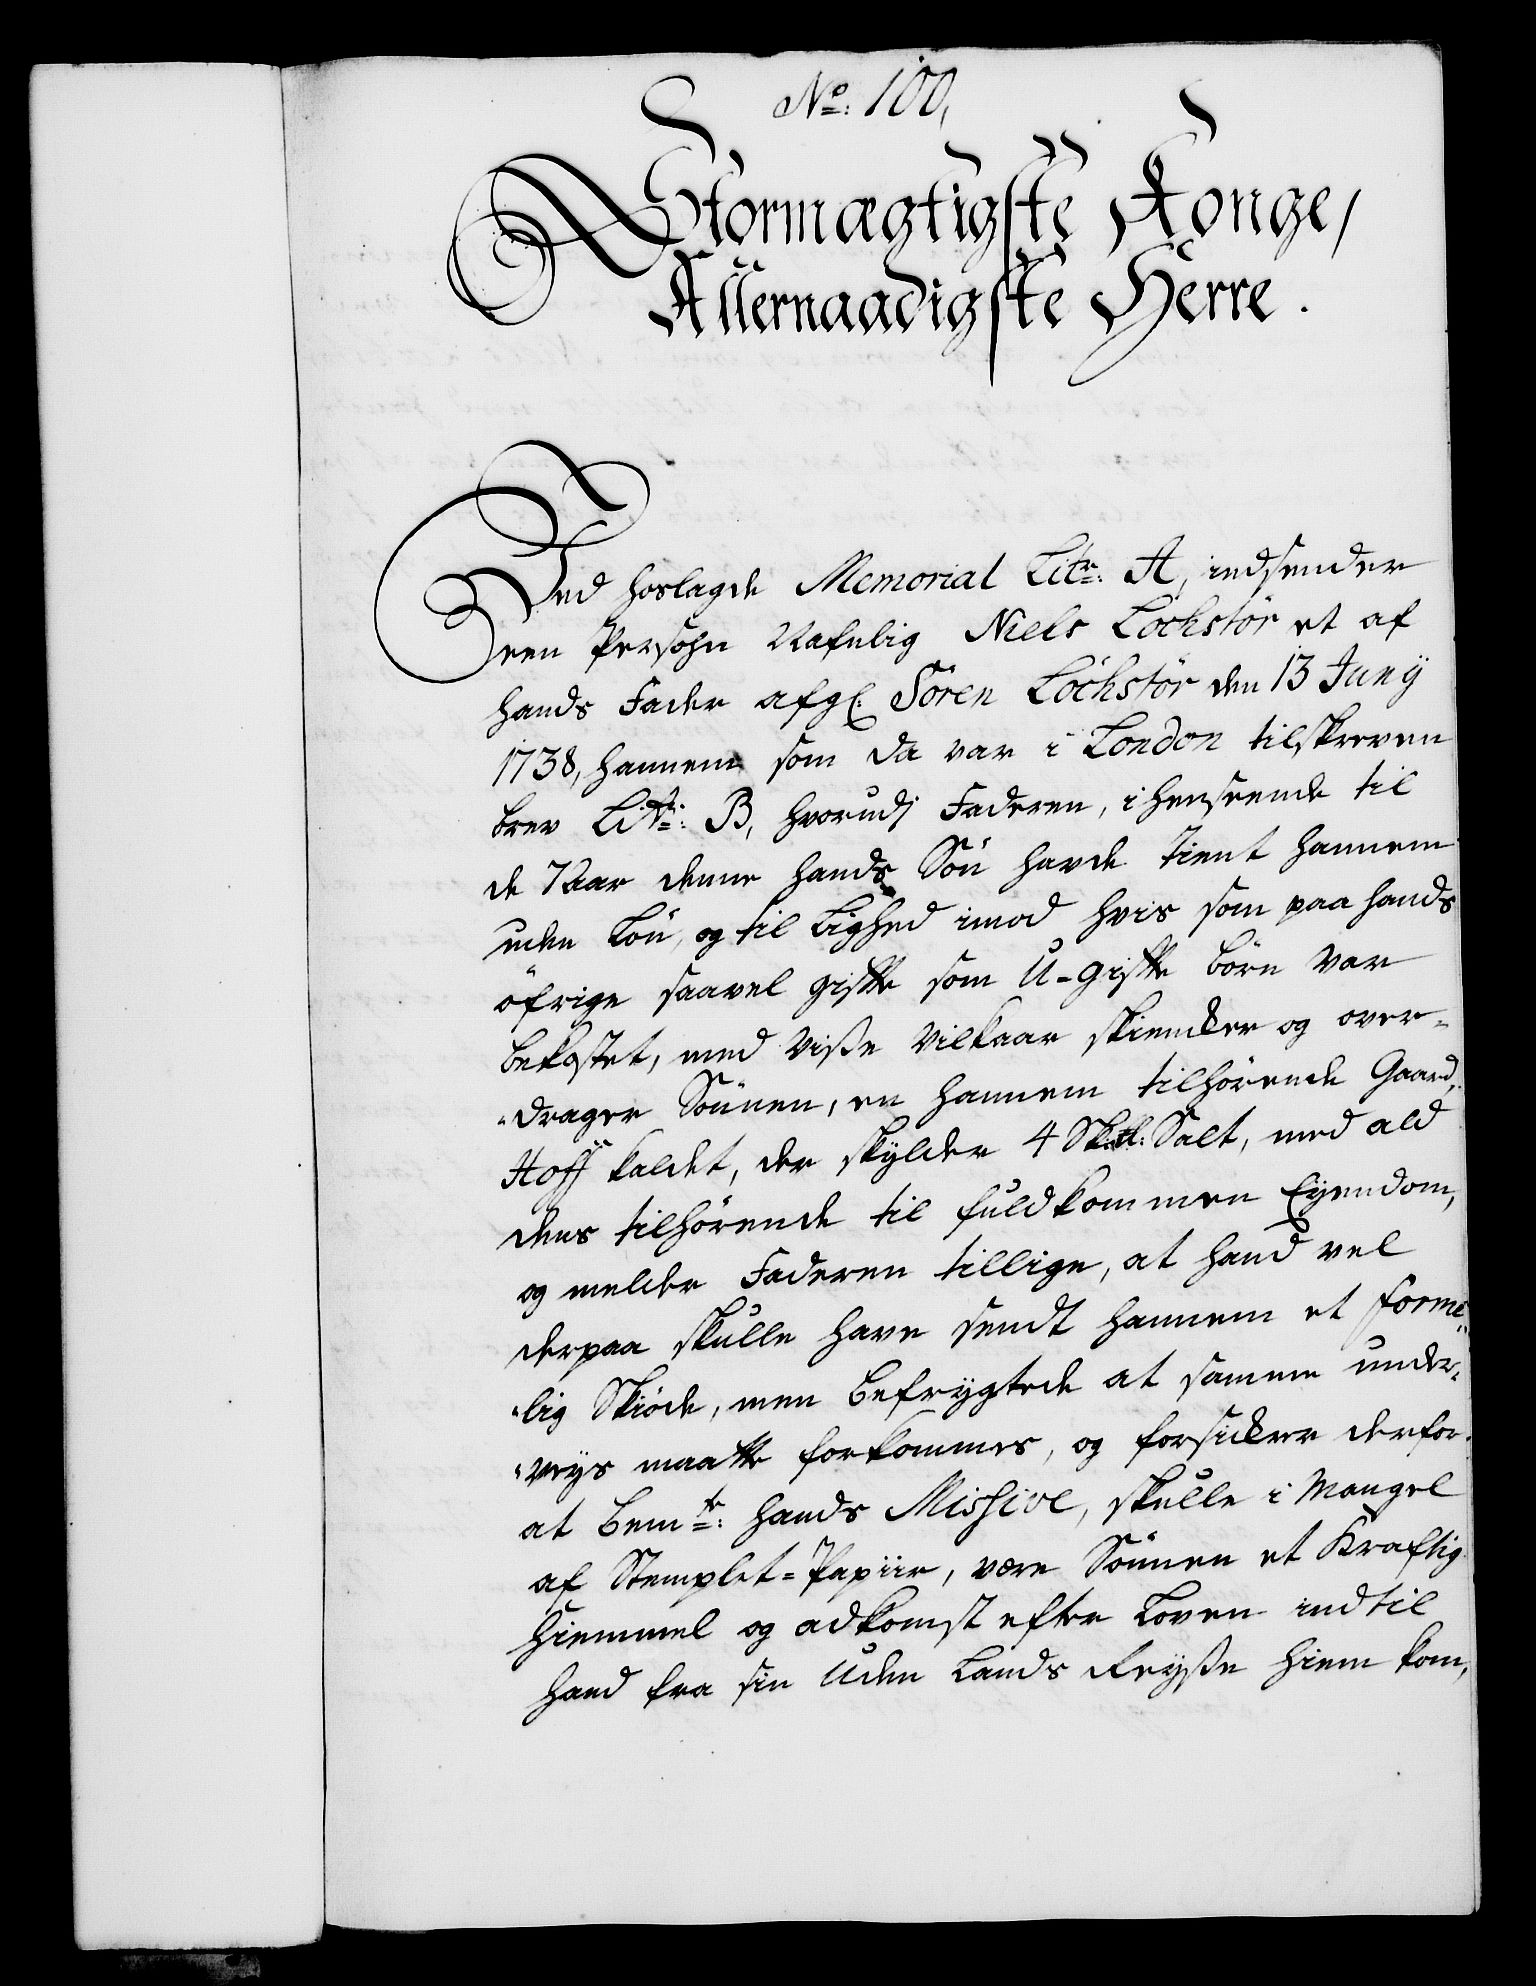 No: 100,
Stormægtigste Konge,
Allernaadigste Herre.
Ved hoslagde Memorial Litr: A, indsender
een Persohn Nafnlig Niels Lochstör et af
hands Fader afg: Sören Löchstör den 13 Juny
1738, hannem som da var i London tilskreven
brev Litr: B, hvorudj Faderen, i henseende til
de 7 Aar denne hands Sön havde tient hannem
uden Lön, og til Lighed imod hvis som paa hands
öfrige saavel gifte som U-gifte börn var
bekostet, med visse vilkaar skiencker og over-
drager Sönnen, en hannem tilhörende Gaard,
Hoff kaldet, der skylder 4 Salt, med ald
dens tilhörende til fuldkommen Eyendom,
og melder Faderen tillige, at hand vel
derpaa skulle have sendt hannem et forme-
lig Skiöde, men befrygtede at samme under-
veys maatte forkommes, og forsickrer derfor
at bemte: hands Missive, skulle i Mangel
af Stemplet-Papiir, være Sönnen et Kraftig
Hiemmel og adkomst efter Loven indtil
hand fra sin Uden Lands Reysse hiem kom,